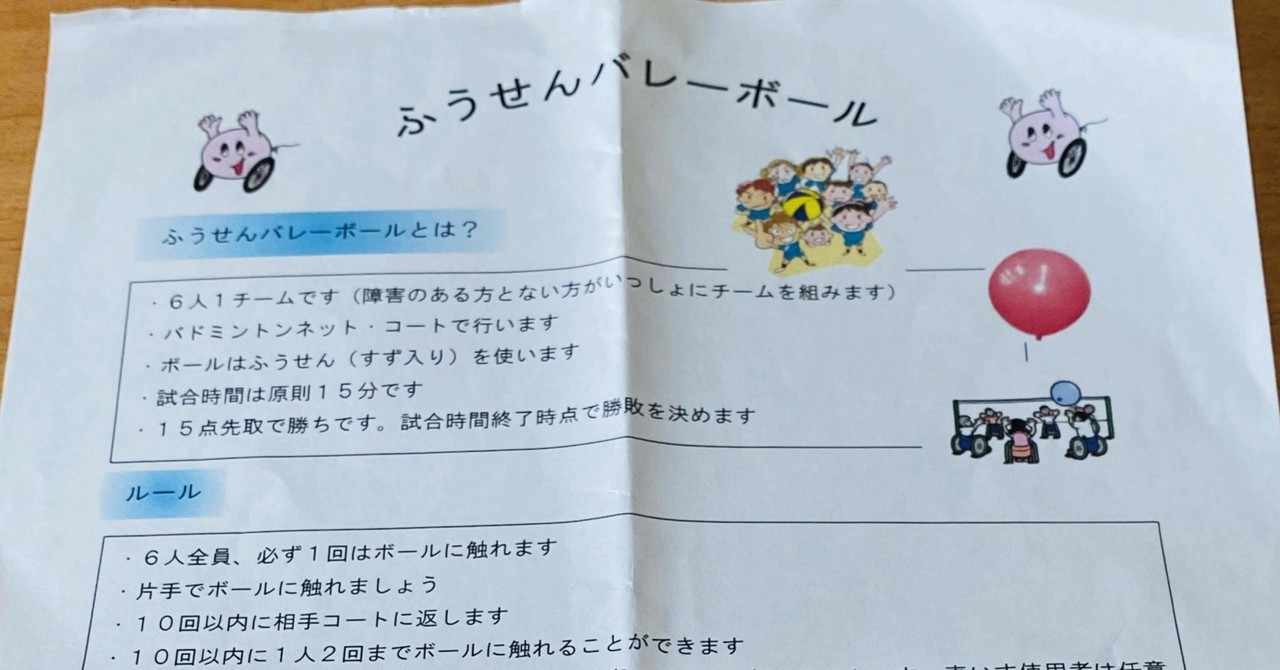 ふうせんバレーボール
ふうせんバレーボールとは？
・６人１チームです（障害のある方とない方がいっしょにチームを組みます）
・バドミントンネット・コートで行います
・ボールはふうせん（すず入り）を使います
・試合時間は原則１５分です
・１５点先取で勝ちです。試合時間終了時点で勝敗を決めます
ルール
・６人全員、必ず１回はボールに触れます
・片手でボールに触れましょう
・１０回以内に相手コートに返します
・１０回以内に１人２回までボールに触れることができます
車いす使用者は任意